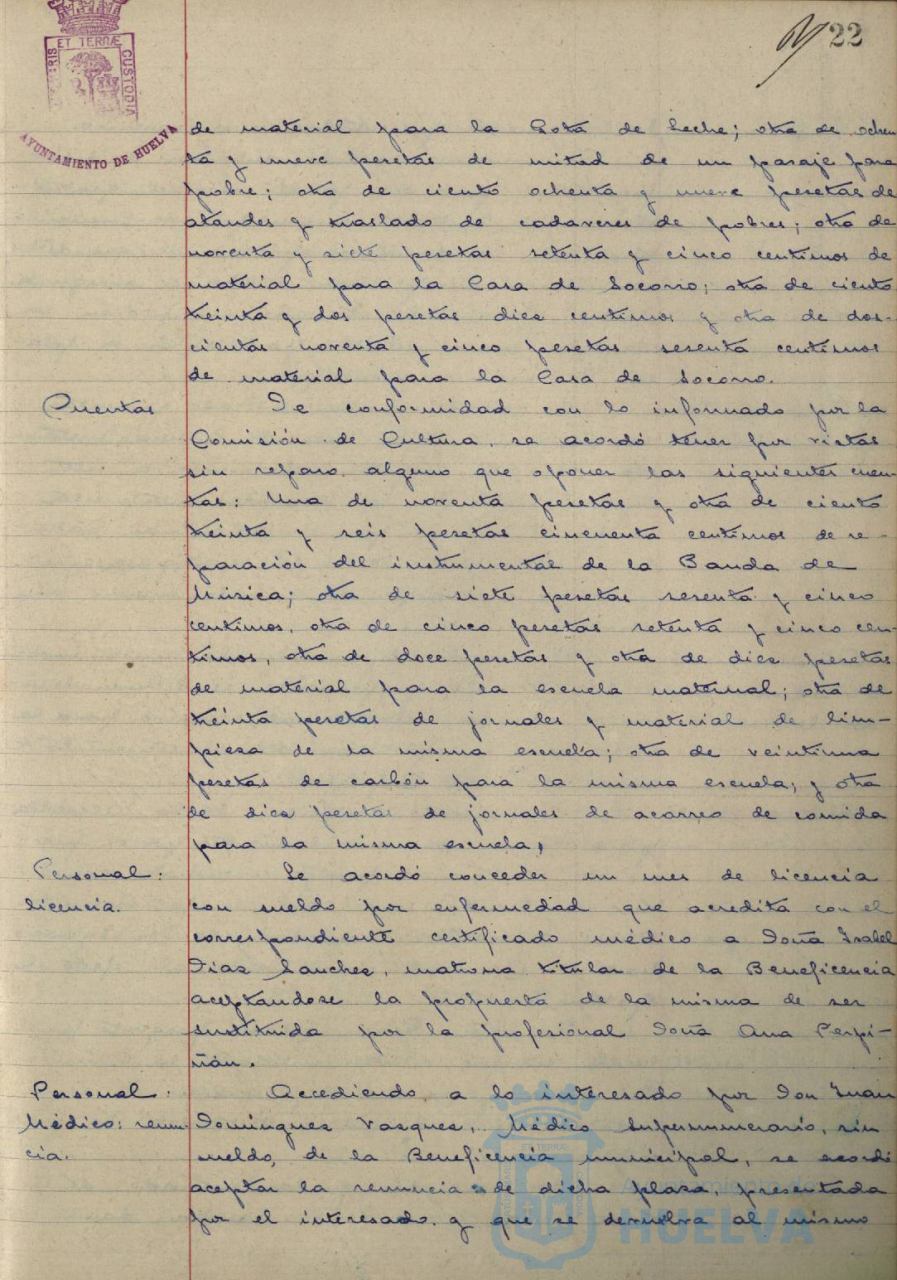 22
PORTUS MARIS ET TERRÆ CUSTODIA
AYUNTAMIENTO DE HUELVA
de material para la Gota de Leche; otra de ochen-
ta y nueve pesetas de mitad de un pasaje para
pobre; otra de ciento ochenta y nueve pesetas de
ataudes y traslado de cadaveres de pobres; otra de
noventa y siete pesetas setenta y cinco centimos de
material para la Casa de Socorro; otra de ciento
treinta y dos pesetas diez centimos y otra de dos-
cientas noventa y cinco pesetas sesenta centimos
de material para la Casa de Socorro.
Cuentas
De conformidad con lo informado por la
Comisión de Cultura, se acordó tener por vistas
sin reparo alguno que oponer las siguientes cuen-
tas: Una de noventa pesetas y otra de ciento
treinta y seis pesetas cincuenta centimos de re-
paración del instrumental de la Banda de
Música; otra de siete pesetas sesenta y cinco
centimos, otra de cinco pesetas setenta y cinco cen-
timos, otra de doce pesetas y otra de diez pesetas
de material para la escuela maternal; otra de
treinta pesetas de jornales y material de lim-
pieza de la misma escuela; otra de veintiuna
pesetas de carbón para la misma escuela; y otra
de diez pesetas de jornales de acarreo de comida
para la misma escuela.
Personal:
licencia.
Se acordó conceder un mes de licencia
con sueldo por enfermedad que acredita con el
correspondiente certificado médico a Doña Isabel
Diaz Sanchez, matrona titular de la Beneficencia
aceptandose la propuesta de la misma de ser
sustituida por la profesional Doña Ana Perpi-
ñán.
Personal:
Médico: renun-
cia.
Accediendo a lo interesado por Don Juan
Dominguez Vazquez, Médico Supernumerario, sin
sueldo, de la Beneficencia municipal, se acordó
aceptar la renuncia de dicha plaza, presentada
por el interesado y que se devuelva al mismo
Ayuntamiento de
HUELVA